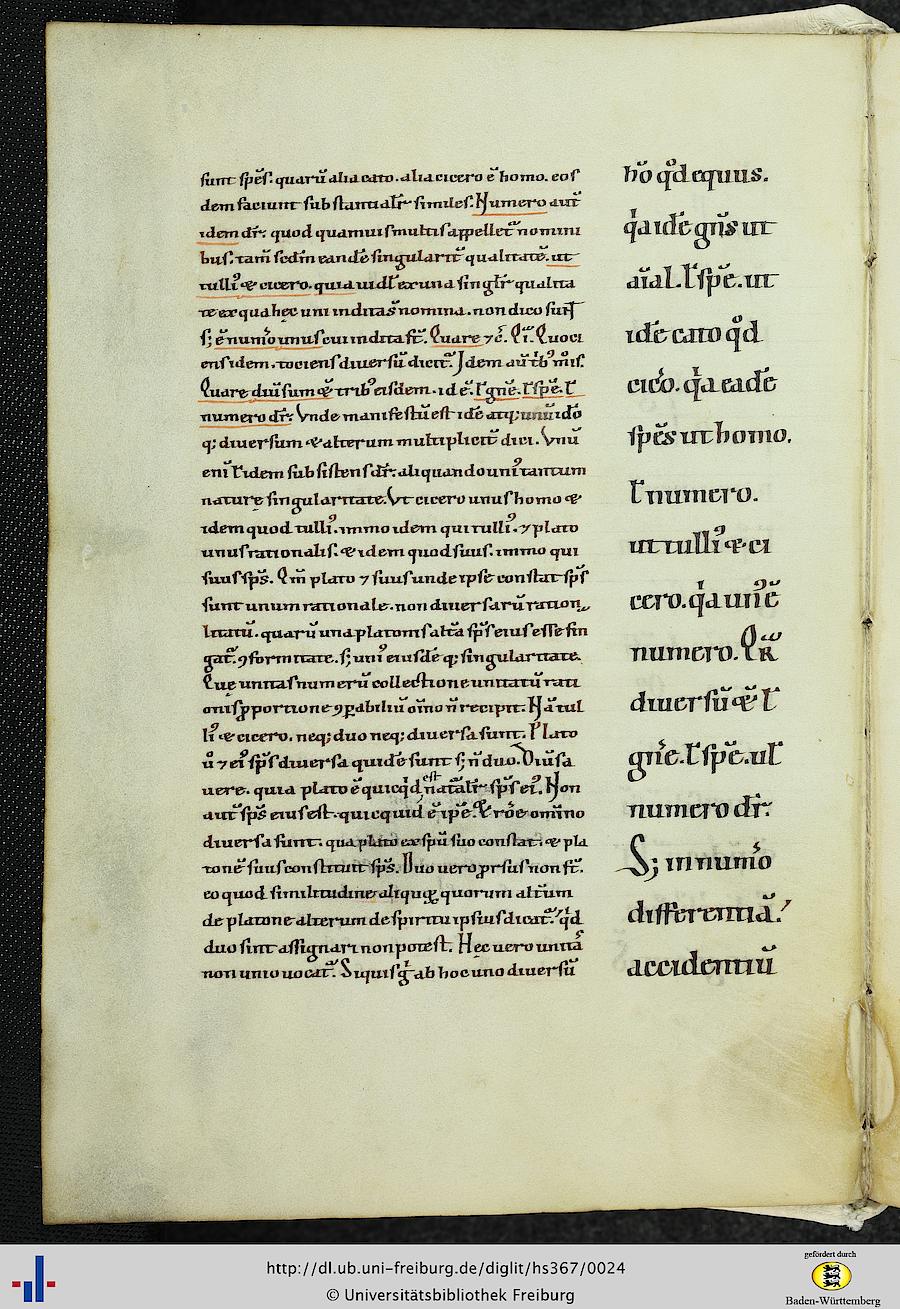 sunt sp̄es. quarū alia cato. alia cicero ē homo. eos
dem faciunt substantialr̄ similes. Numero aut̄
idem dr̄. quod quamuis multis appellet̄ nomini
bus. tam̄ sed in eandē singularit̄ qualitatē. ut
tulli᾽ & cicero. quia uidl̄ ex una singlr̄ qualita
te ex qua hęc uni inditas nomina. non dico sun̄t
s; ē num̄o unus cui indita st̄. Quare ⁊ c̄. Quoci
ens idem. tociens diuersū dicit̄. Idem aut̄
Quare diūsum & trib᾽ eisdem. id ē. l̄ gn̄e. l̄ spē. l̄
numero dr̄. Vnde manifestū est idē atq; unū idō
q; diuersum & alterum multiplicit̄ dici. Vnū
eni᾽ l̄ idem subsistens dr̄. aliquando uni᾽ tantum
naturę singularitate. Vt cicero unus homo &
idem quod tulli᾽. immo idem qui tulli᾽. ⁊ plato
unus rationalis. & idem quod suus. immo qui
suus sp̄s. Qm̄ plato ⁊ suus unde ipse constat sp̄s
sunt unum rationale. non diuersarū ration
litatū. quarū una platonis alt̄a sp̄s eius esse sin
gat̄. ꝯformitate. s; uni᾽ eiusdē q; singularitate.
Quę unitas numerū collectione unitatū rati
onis ꝓportione ꝯꝑabiliū om̄o n̄ recipit. Nā tul
li᾽ & cicero. neq; duo neq; diuersa sunt. Plato
ū ⁊ ei᾽ sp̄s diuersa quidē sunt s; n̄ duo. Diūsa
uere. quia plato ē quicqd est natalr̄ sp̄s ei᾽. Non
aut̄ sp̄s eius est. quicquid ē ipē. & rōe om̄ino
diuersa sunt. qua plato ex spū suo constat. & pla
tonē suus constituit sp̄s. Duo uero prsus non st̄.
eo quod similitudine aliqua quorum alt̄um
de platone alterum de spiritu ipsius dicat̄. qd
duo sint assignari non potest. Hęc uero unitā
non unio uocat̄. Siquis g᾽ ab hoc uno diuersū
hō qd equus.
qa idē gn̄s ut
aīal. l̄ spē. ut
idē cato qd
cic̄o. qa eadē
spēs ut homo.
l̄ numero.
ut tulli᾽ & ci
cero. qa un᾽ ē
numero. Qr̄
diuersū & l̄
gn̄e. l̄ spē. ul̄
numero dr̄.
S; in num̄o
differentiā.
accidentiū
http://dl.ub.uni-freiburg.de/diglit/hs367/0024
© Universitätsbibliothek Freiburg
gefördert durch
Baden-Württemberg